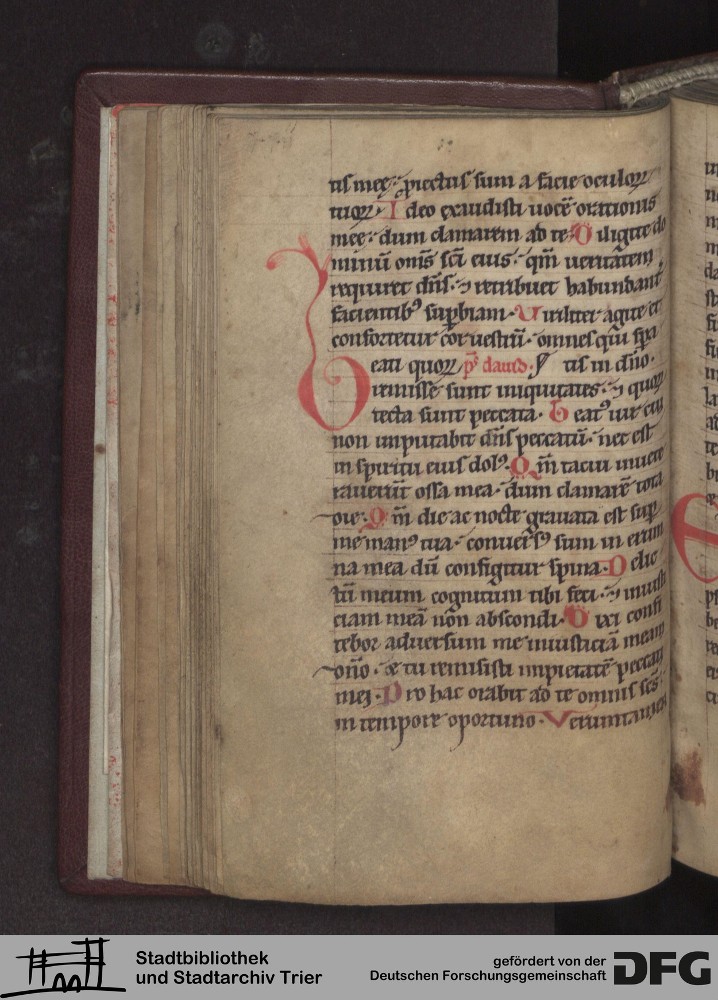 tis meę· ꝓiectus sum a facie oculoꝝ
tuoꝝ· Ideo exaudisti uocē orationis
mee· dum clamarem ad te· Diligite do
minū om̄s sc̄i eius· qm̄ ueritatem
requiret dn̄s· ⁊ retribuet habundant
facientibꝰ suꝑbiam· Uiriliter agite et
confortetur cor uestrū· omnes qui spa
Beati quoꝝ ps̄ dauid· tis in dn̄o·
remisse sunt iniquitates· ⁊ quoꝝ
tecta sunt peccata· Beatꝰ uir cui
non imputabit dn̄s peccatū· nec est
in spiritu eius dolꝰ· Qm̄ tacui inuete
rauerūt ossa mea· dum clamarē tota
die· Qm̄ die ac nocte grauata est suꝑ
me manꝰ tua· conuersꝰ sum in erum
na mea dū configitur spina· Delic
tū meum cognitum tibi feci· ⁊ iniusti
ciam meā non abscondi· Dixi confi
tebor aduersum me iniusticiā meam
dn̄o· & tu remisisti impietatē peccati
mei· Pro hac orabit ad te omnis sc̄s
in tempore oportuno· Verumtamen
Stadtbibliothek
und Stadtarchiv Trier
gefördert von der
Deutschen Forschungsgemeinschaft
DFG